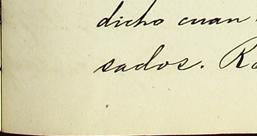 dicho cuan
sados. Ra